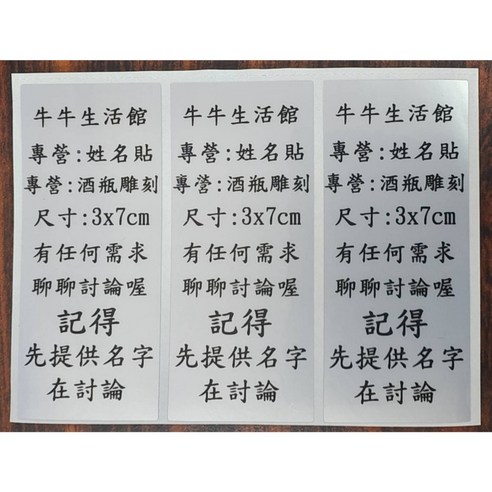 牛牛生活館
專營:姓名貼
專營:酒瓶雕刻
尺寸:3x7cm
有任何需求
聊聊討論喔
記得
先提供名字
在討論
牛牛生活館
專營:姓名貼
專營:酒瓶雕刻
尺寸:3x7cm
有任何需求
聊聊討論喔
記得
先提供名字
在討論
牛牛生活館
專營:姓名貼
專營:酒瓶雕刻
尺寸:3x7cm
有任何需求
聊聊討論喔
記得
先提供名字
在討論